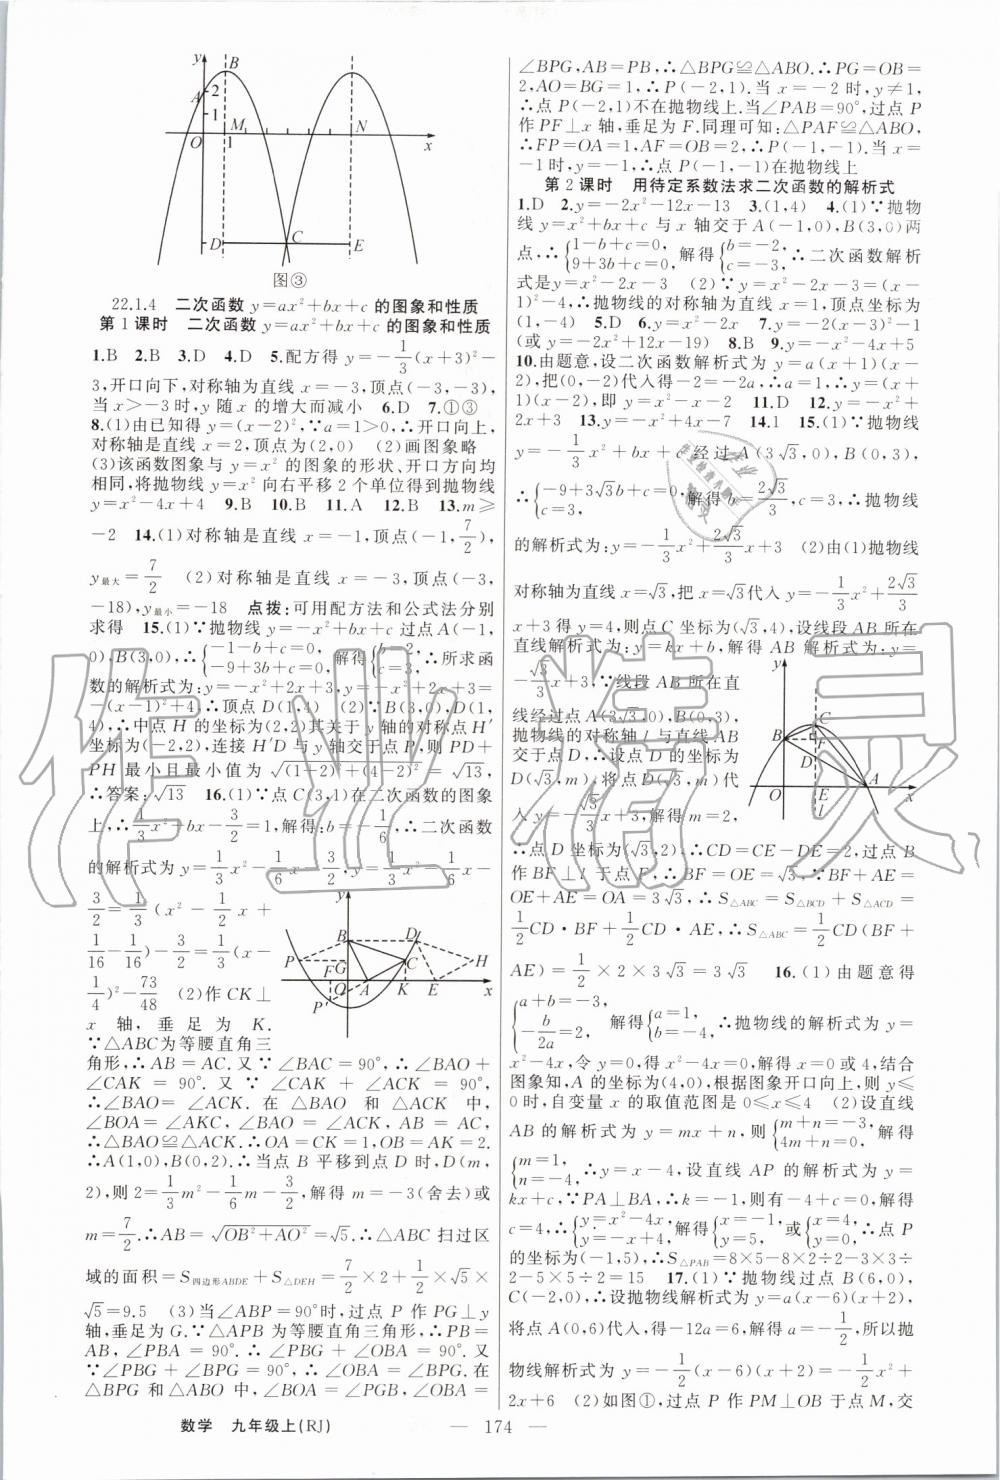 y
B
A
2
1
M
N
O
1
x
D
C
E
图③
22.1.4 二次函数 y=ax²+bx+c 的图象和性质
第 1 课时 二次函数 y=ax²+bx+c 的图象和性质
1.B 2.B 3.D 4.D 5.配方得 y=-1/3(x+3)²-
3,开口向下,对称轴为直线 x=-3,顶点(-3,-3),
当 x>-3 时,y 随 x 的增大而减小 6.D 7.①③
8.(1)由已知得 y=(x-2)²,∵a=1>0,∴开口向上,
对称轴是直线 x=2,顶点为(2,0) (2)画图象略
(3)该函数图象与 y=x² 的图象的形状、开口方向均
相同,将抛物线 y=x² 向右平移 2 个单位得到抛物线
y=x²-4x+4 9.B 10.B 11.A 12.B 13.m≥
-2 14.(1)对称轴是直线 x=-1,顶点(-1,7/2),
y最大=7/2 (2)对称轴是直线 x=-3,顶点(-3,
-18),y最小=-18 点拨:可用配方法和公式法分别
求得 15.(1)∵抛物线 y=-x²+bx+c 过点 A(-1,
0),B(3,0),∴{-1-b+c=0, -9+3b+c=0, 解得{b=2, c=3, ∴所求函
数的解析式为:y=-x²+2x+3,y=-x²+2x+3=
-(x-1)²+4,∴顶点 D(1,4) (2)∵B(3,0),D(1,
4),∴中点 H 的坐标为(2,2)其关于 y 轴的对称点 H′
坐标为(-2,2),连接 H′D 与 y 轴交于点 P,则 PD+
PH 最小且最小值为 √((1+2)²+(4-2)²)=√13,
∴答案:√13 16.(1)∵点 C(3,1)在二次函数的图象
上,∴1/3x²+bx-3/2=1,解得:b=-1/6,∴二次函数
的解析式为 y=1/3x²-1/6x-3/2 y=1/3x²-1/6x-
3/2=1/3(x²-1/2x+
1/16-1/16)-3/2=1/3(x-
1/4)²-73/48 (2)作 CK⊥
x 轴,垂足为 K.
∵△ABC为等腰直角三
y
B
D
P
G
C
H
F
O
A
K
E
x
P′
角形,∴AB=AC.又∵∠BAC=90°,∴∠BAO+
∠CAK=90°.又∵∠CAK+∠ACK=90°,
∴∠BAO=∠ACK.在△BAO 和△ACK 中,
∠BOA=∠AKC,∠BAO=∠ACK,AB=AC,
∴△BAO≌△ACK.∴OA=CK=1,OB=AK=2.
∴A(1,0),B(0,2).∴当点 B 平移到点 D 时,D(m,
2),则 2=1/3m²-1/6m-3/2,解得 m=-3(舍去)或
m=7/2.∴AB=√(OB²+AO²)=√5.∴△ABC 扫过区
域的面积=S四边形ABDE+S△DEH=7/2×2+1/2×√5×
√5=9.5 (3)当∠ABP=90°时,过点 P 作 PG⊥y
轴,垂足为 G.∵△APB 为等腰直角三角形,∴PB=
AB,∠PBA=90°.∴∠PBG+∠OBA=90°.又
∵∠PBG+∠BPG=90°,∴∠OBA=∠BPG.在
△BPG 和△ABO 中,∠BOA=∠PGB,∠OBA=
∠BPG,AB=PB,∴△BPG≌△ABO.∴PG=OB=
2,AO=BG=1,∴P(-2,1).当 x=-2 时,y≠1,
∴点 P(-2,1)不在抛物线上.当∠PAB=90°,过点 P
作 PF⊥x 轴,垂足为 F.同理可知:△PAF≌△ABO,
∴FP=OA=1,AF=OB=2,∴P(-1,-1).当 x=
-1时,y=-1,∴点 P(-1,-1)在抛物线上
第 2 课时 用待定系数法求二次函数的解析式
1.D 2.y=-2x²-12x-13 3.(1,4) 4.(1)∵抛物
线 y=x²+bx+c 与 x 轴交于 A(-1,0),B(3,0)两
点,∴{1-b+c=0, 9+3b+c=0, 解得{b=-2, c=-3, ∴二次函数解析
式是y=x²-2x-3 (2)∵y=x²-2x-3=(x-
1)²-4,∴抛物线的对称轴为直线 x=1,顶点坐标为
(1,-4) 5.D 6.y=x²-2x 7.y=-2(x-3)²-1
(或 y=-2x²+12x-19) 8.B 9.y=-x²-4x+5
10.由题意,设二次函数解析式为 y=a(x+1)(x-
2),把(0,-2)代入得-2=-2a,∴a=1,∴y=(x+
1)(x-2),即 y=x²-x-2 11.D 12.y=-x²+
2x+3 13.y=-x²+4x-7 14.1 15.(1)∵抛物线
y=-1/3x²+bx+c 经过 A(3√3,0),B(0,3),
∴{-9+3√3b+c=0, c=3, 解得 b=2√3/3,c=3,∴抛物线
的解析式为:y=-1/3x²+2√3/3x+3 (2)由(1)抛物线
对称轴为直线 x=√3,把 x=√3代入 y=-1/3x²+2√3/3
x+3得 y=4,则点 C 坐标为(√3,4),设线段 AB 所在
直线解析式为:y=kx+b,解得 AB 解析式为:y=
-√3/3x+3,∵线段 AB 所在直
线经过点 A(3√3,0),B(0,3),
抛物线的对称轴 l 与直线 AB
交于点 D,∴设点 D 的坐标为
D(√3,m),将点 D(√3,m)代
入 y=-√3/3x+3,解得 m=2,
y
C
B
F
D
O
E
A
x
∴点 D 坐标为(√3,2),∴CD=CE-DE=2,过点 B
作 BF⊥l 于点 F,∴BF=OE=√3,∵BF+AE=
OE+AE=OA=3√3,∴S△ABC=S△BCD+S△ACD=
1/2CD·BF+1/2CD·AE,∴S△ABC=1/2CD(BF+
AE)=1/2×2×3√3=3√3 16.(1)由题意得
{a+b=-3, -b/2a=2, 解得{a=1, b=-4, ∴抛物线的解析式为 y=
x²-4x,令 y=0,得 x²-4x=0,解得 x=0 或 4,结合
图象知,A 的坐标为(4,0),根据图象开口向上,则 y≤
0 时,自变量 x 的取值范围是 0≤x≤4 (2)设直线
AB 的解析式为 y=mx+n,则{m+n=-3, 4m+n=0, 解得
{m=1, n=-4, ∴y=x-4,设直线 AP 的解析式为 y=
kx+c,∵PA⊥BA,∴k=-1,则有-4+c=0,解得
c=4,∴{y=x²-4x, y=-x+4, 解得{x=-1, y=5, 或{x=4, y=0, ∴点 P
的坐标为(-1,5),∴S△PAB=8×5-8×2÷2-3×3÷
2-5×5÷2=15 17.(1)∵抛物线过点 B(6,0),
C(-2,0),∴设抛物线解析式为 y=a(x-6)(x+2),
将点 A(0,6)代入,得-12a=6,解得 a=-1/2,所以抛
物线解析式为 y=-1/2(x-6)(x+2)=-1/2x²+
2x+6 (2)如图①,过点 P 作 PM⊥OB 于点 M,交
数学 九年级上(RJ)
— 174 —
作业精灵